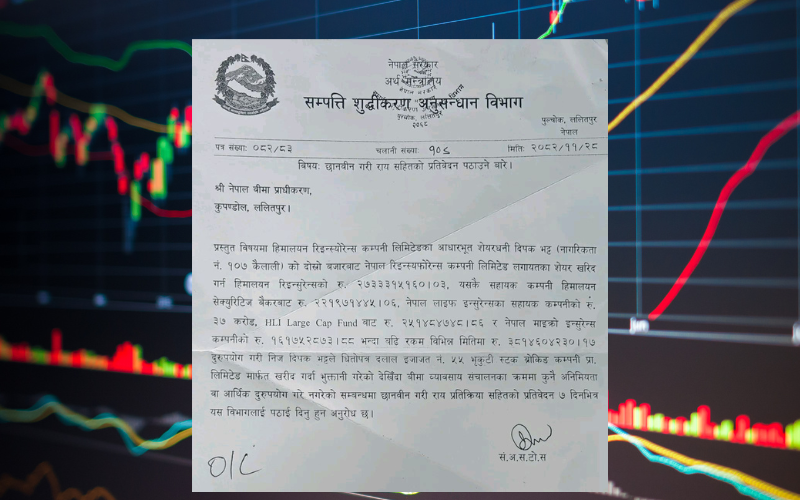 नेपाल सरकार
अर्थ मन्त्रालय
सम्पत्ति शुद्धीकरण अनुसन्धान विभाग
पुल्चोक, ललितपुर
नेपाल
पत्र संख्याः ०८२/८३ चलानी संख्याः १०६ मितिः २०८२/११/२८
विषयः छानबीन गरी राय सहितको प्रतिवेदन पठाउने बारे।
श्री नेपाल बीमा प्राधीकरण,
कुपण्डोल, ललितपुर।
प्रस्तुत विषयमा हिमालयन रिइन्स्योरेन्स कम्पनी लिमिटेडका आधारभूत शेयरधनी दिपक भट्ट (नागरिकता
नं. १०७ कैलाली) को दोस्रो बजारबाट नेपाल रिइन्स्योरेन्स कम्पनी लिमिटेड लगायतका शेयर खरिद
गर्न हिमालयन रिइन्सुरेन्सको रु. २७३३१५१६०।०३, यसकै सहायक कम्पनी हिमालयन
सेक्युरिटिज बैंकरबाट रु. २२१९७१४४५।०६, नेपाल लाइफ इन्सुरेन्सका सहायक कम्पनीको रु.
३७ करोड, HLI Large Cap Fund बाट रु. २५१४८४७४८।८६ र नेपाल माइक्रो इन्सुरेन्स
कम्पनीको रु. १६१७५२८७३।८८ भन्दा बढि रकम विभिन्न मितिमा रु. ३८१४६०४२३०।१७
दुरुपयोग गरी निज दिपक भट्टले धितोपत्र दलाल इजाजत नं. ५५ भृकुटी स्टक ब्रोकिङ कम्पनी प्रा.
लिमिटेड मार्फत खरीद गर्दा भुक्तानी गरेको देखिँदा बीमा व्यावसाय संचालनका क्रममा कुनै अनिमियता
वा आर्थिक दुरुपयोग गरे नगरेको सम्बन्धमा छानबीन गरी राय प्रतिक्रिया सहितको प्रतिवेदन ७ दिनभित्र
यस विभागलाई पठाई दिनु हुन अनुरोध छ।
सं.अ.स.टो.स
O/C
Jun